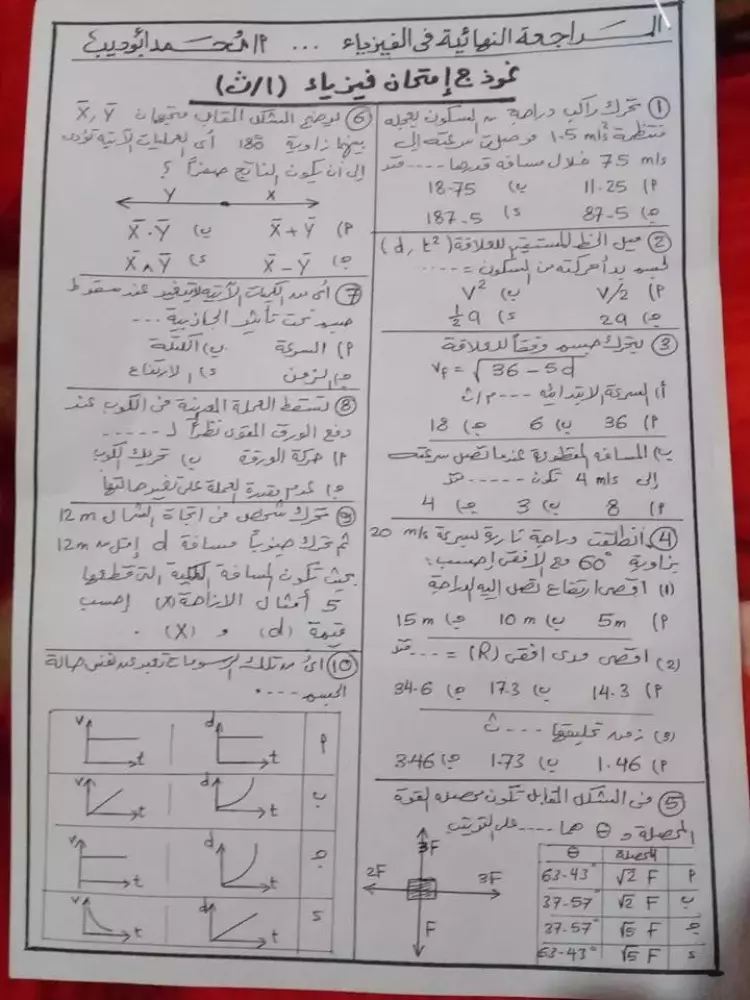 المراجعة النهائية فى الفيزياء ... م/ محمد أبوديب
نموذج إمتحان فيزياء (١/ث)
① تحرك راكب دراجة من السكون بعجله
منتظمة 1.5 m/s² فوصلت سرعته إلى
7.5 m/s خلال مسافة قدرها .... متر
٢) 11.25 ب) 18.75
جـ) 87.5 د) 187.5
② ميل الخط المستقيم للعلاقة (d, t²)
لجسم بدأ حركته من السكون = ....
٢) V/2 ب) V²
جـ) 2a د) ½ a
③ يتحرك جسم وفقاً للعلاقة
Vf = √36 - 5d
أ) السرعة الابتدائية .... م/ث
٢) 36 ب) 6 جـ) 18
ب) المسافه المقطوعة عندما تصل سرعته
إلى 4 m/s تكون .... متر
٢) 8 ب) 3 جـ) 4
④ انطلقت دراجة نارية بسرعة 20 m/s
بزاوية 60° مع الأفقى إحسب:
(1) اقصى ارتفاع تصل إليه الدراجة
٢) 5m ب) 10 m جـ) 15 m
(2) اقصى مدى افقى (R) = .... متر
٢) 14.3 ب) 17.3 جـ) 34.6
(3) زمن تحليقها .... ث
٢) 1.46 ب) 1.73 جـ) 3.46
⑤ فى الشكل المقابل تكون محصله القوة
المحصلة و θ هما .... على الترتيب
المحصلة θ
٢ √2 F 63.43°
ب √2 F 37.57°
جـ √5 F 37.57°
د √5 F 63.43°
3F
2F 3F
F
⑥ لتوضيح الشكل المقابل متجهان X̄, Ȳ
بينهما زاوية 180 أى العمليات الآتيه تؤدى
إلى أن يكون الناتج صفراً ؟
Y X
٢) X̄ + Ȳ ب) X̄ . Ȳ
جـ) X̄ - Ȳ د) X̄ ∧ Ȳ
⑦ أى من الكميات الآتيه لا يتغير عند سقوط
جسم تحت تأثير الجاذبية ...
٢) السرعة ب) الكتلة
جـ) الزمن د) الارتفاع
⑧ تسقط العملة المعدنية فى الكوب عند
دفع الورق المقوى نظراً لـ ....
٢) حركة الورقة ب) تحريك الكوب
جـ) عدم مقدرة العملة على تغير حالتها
⑨ تحرك شخص فى اتجاة الشمال 12m
ثم تحرك جنوباً مسافة d أقل من 12m
بحيث تكون المسافة الكلية التى قطعها
5 أمثال الازاحة (X) إحسب
قيمة (d) و (X) .
⑩ أى من تلك الرسومات تعبر عن نفس حالة
الجسم ....
V t d t ٢
V t d t ب
V t d t جـ
V t d t د